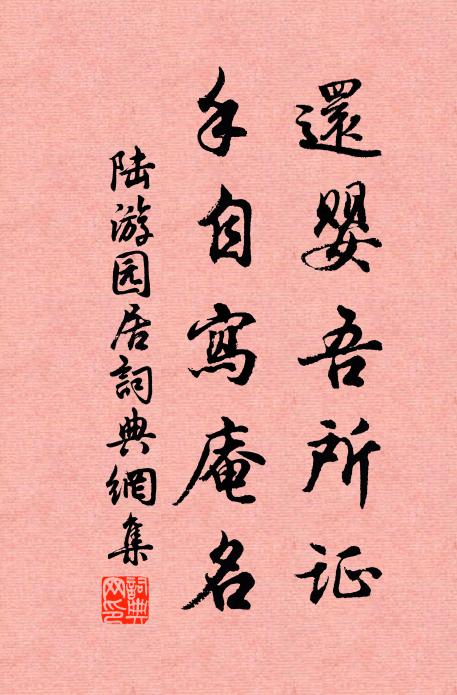 還嬰吾所证
手自寫庵名
陆游园居詞典網集
詞典网印